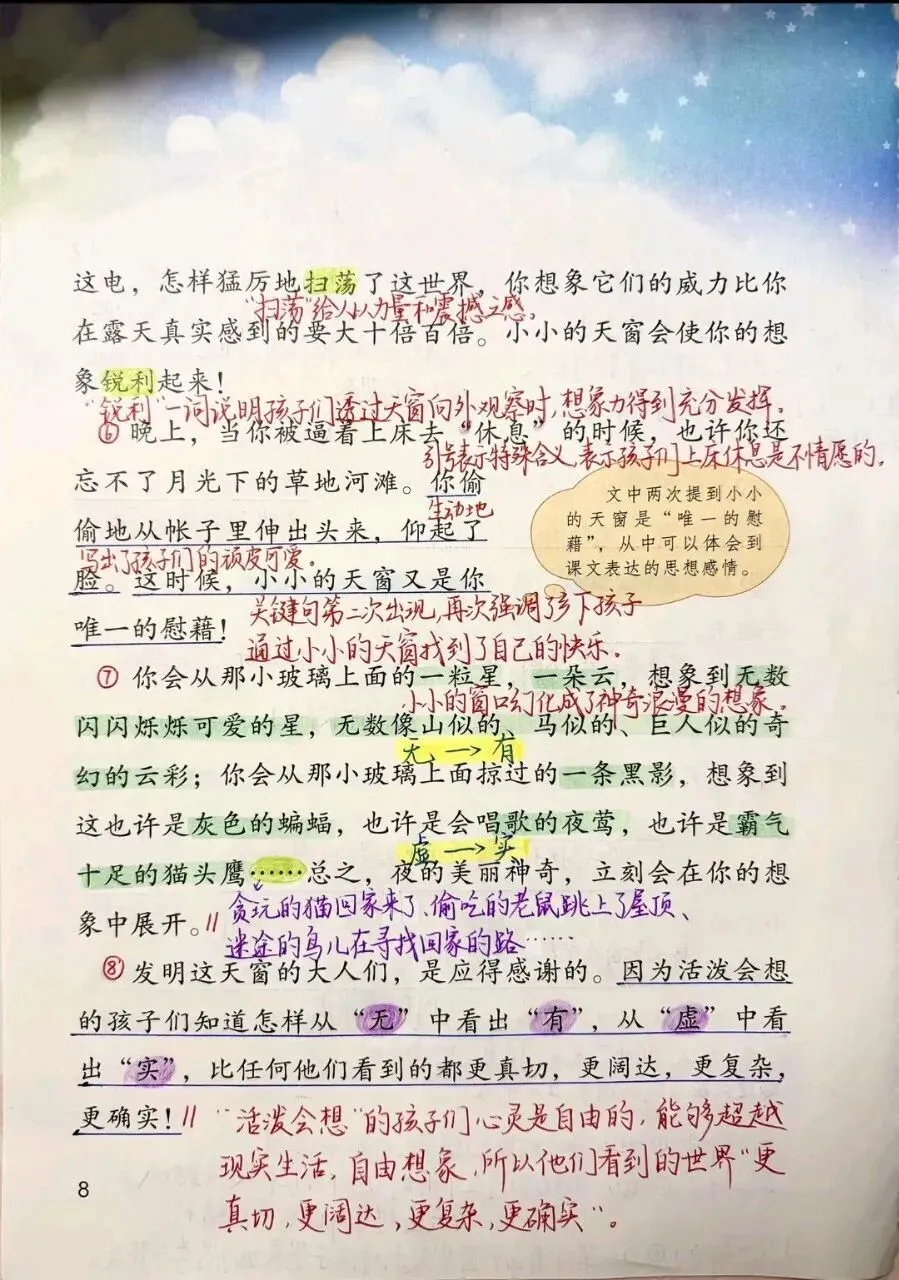 这电，怎样猛厉地扫荡了这世界，你想象它们的威力比你
“扫荡”给人以力量和震撼之感。
在露天真实感到的要大十倍百倍。小小的天窗会使你的想
象锐利起来！
“锐利”一词说明孩子们透过天窗向外观察时，想象力得到充分发挥。
⑥ 晚上，当你被逼着上床去“休息”的时候，也许你还
引号表示特殊含义，表示孩子们上床休息是不情愿的。
忘不了月光下的草地河滩。你偷
生动地
偷地从帐子里伸出头来，仰起了
写出了孩子们的顽皮可爱。
脸。这时候，小小的天窗又是你
唯一的慰藉！
文中两次提到小小
的天窗是“唯一的慰
藉”，从中可以体会到
课文表达的思想感情。
关键句第二次出现，再次强调了乡下孩子
通过小小的天窗找到了自己的快乐。
⑦ 你会从那小玻璃上面的一粒星，一朵云，想象到无数
小小的窗口幻化成了神奇浪漫的想象。
闪闪烁烁可爱的星，无数像山似的、马似的、巨人似的奇
无→有
幻的云彩；你会从那小玻璃上面掠过的一条黑影，想象到
这也许是灰色的蝙蝠，也许是会唱歌的夜莺，也许是霸气
虚→实
十足的猫头鹰……总之，夜的美丽神奇，立刻会在你的想
象中展开。//
贪玩的猫回家来了、偷吃的老鼠跳上了屋顶、
迷途的鸟儿在寻找回家的路……
⑧ 发明这天窗的大人们，是应得感谢的。因为活泼会想
的孩子们知道怎样从“无”中看出“有”，从“虚”中看
出“实”，比任何他们看到的都更真切，更阔达，更复杂，
更确实！//
“活泼会想”的孩子们心灵是自由的，能够超越
现实生活，自由想象，所以他们看到的世界“更
真切，更阔达，更复杂，更确实”。
8